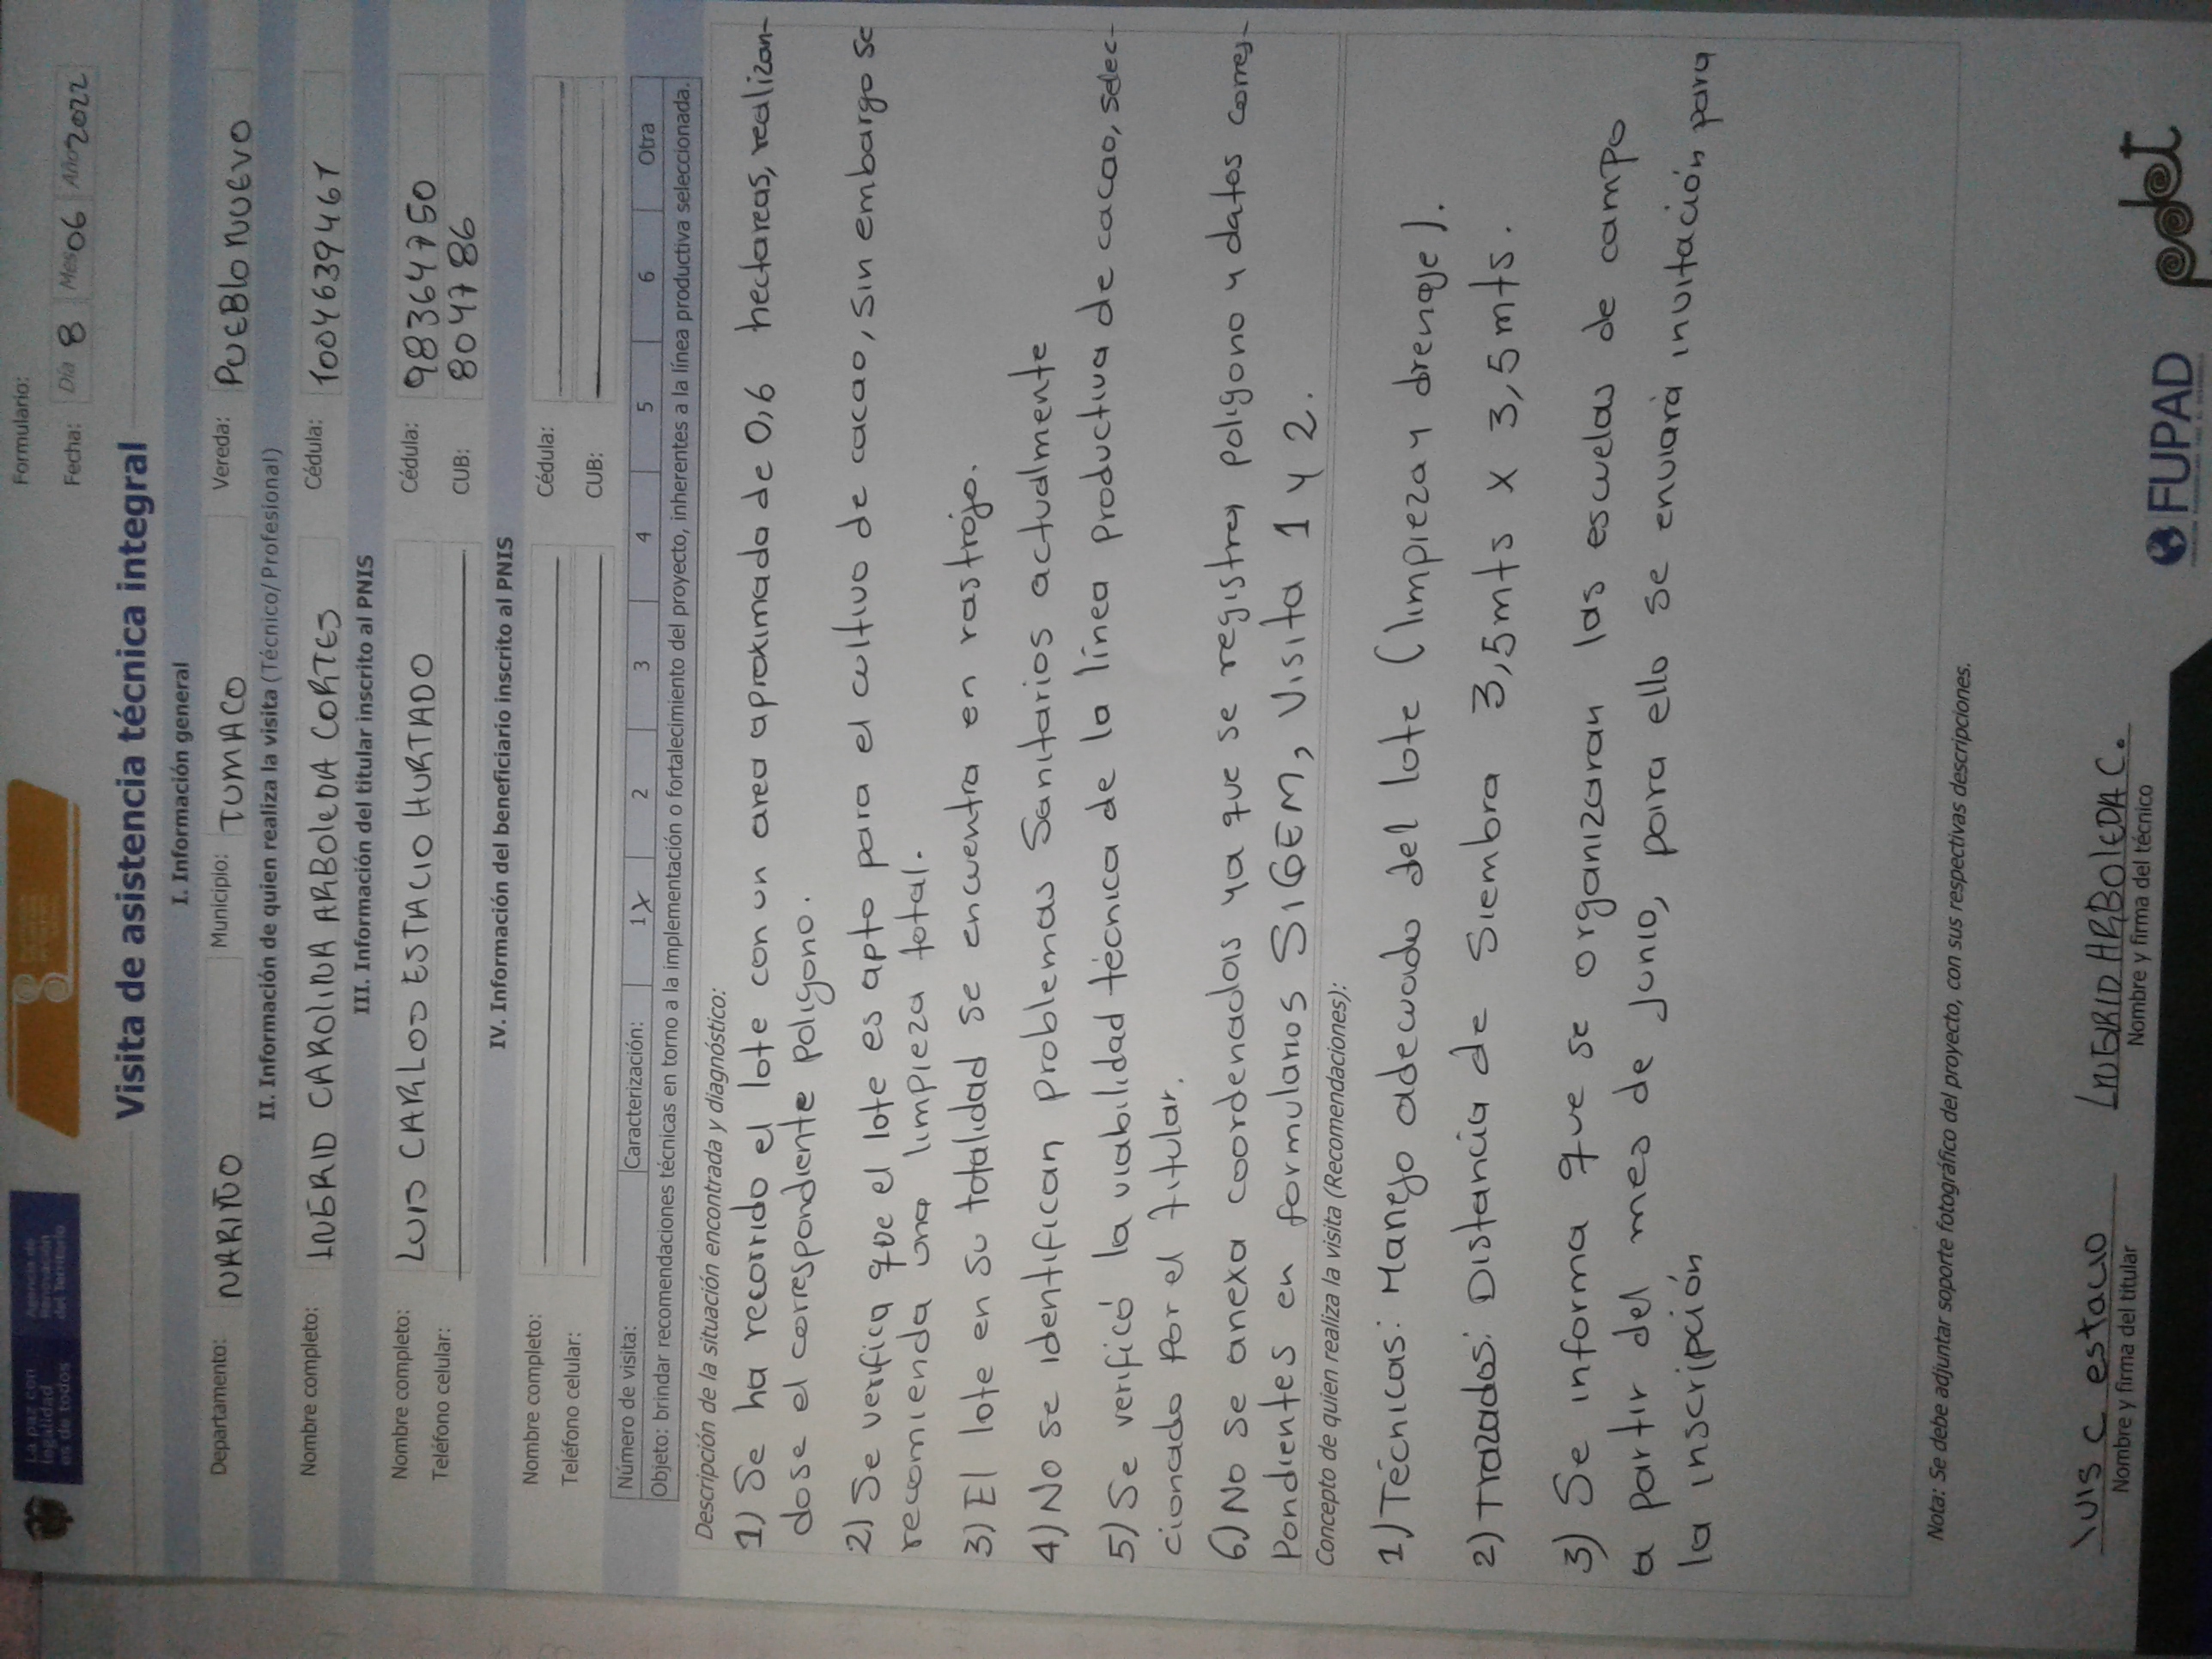 La paz con legalidad es de todos
Agencia de Renovación del Territorio
Formulario:
Fecha: Día 8 Mes 06 Año 2022
Visita de asistencia técnica integral
I. Información general
Departamento: NARIÑO Municipio: TUMACO Vereda: PUEBlo NUEVO
II. Información de quien realiza la visita (Técnico/Profesional)
Nombre completo: INGRID CAROLINA ARBOLEDA CORTES Cédula: 1004639467
III. Información del titular inscrito al PNIS
Nombre completo: LUIS CARLOS ESTACIO HURTADO Cédula: 98364750
Teléfono celular: CUB: 804786
IV. Información del beneficiario inscrito al PNIS
Nombre completo: Cédula:
Teléfono celular: CUB:
Número de visita: Caracterización: 1 X 2 3 4 5 6 Otra
Objeto: brindar recomendaciones técnicas en torno a la implementación o fortalecimiento del proyecto, inherentes a la línea productiva seleccionada.
Descripción de la situación encontrada y diagnóstico:
1) Se ha recorrido el lote con un area aproximada de 0,6 hectareas, realizan-
dose el correspondiente poligono.
2) Se verifica que el lote es apto para el cultivo de cacao, sin embargo se
recomienda una limpieza total.
3) El lote en su totalidad se encuentra en rastrojo.
4) No se identifican problemas Sanitarios actualmente
5) Se verificó la viabilidad técnica de la línea productiva de cacao, selec-
cionado por el titular.
6) No se anexa coordenadas ya que se registra poligono y datos corres-
Pondientes en formularios SIGEM, Visita 1 y 2.
Concepto de quien realiza la visita (Recomendaciones):
1) Técnicas: Manejo adecuado del lote (limpieza y drenaje).
2) Trazados: Distancia de Siembra 3,5mts x 3,5mts.
3) Se informa que se organizaran las escuelas de campo
a partir del mes de Junio, para ello se enviará invitación para
la inscripción
Nota: Se debe adjuntar soporte fotográfico del proyecto, con sus respectivas descripciones.
luis c estacio INGRID ARBOLEDA C.
Nombre y firma del titular Nombre y firma del técnico
FUPAD pdet